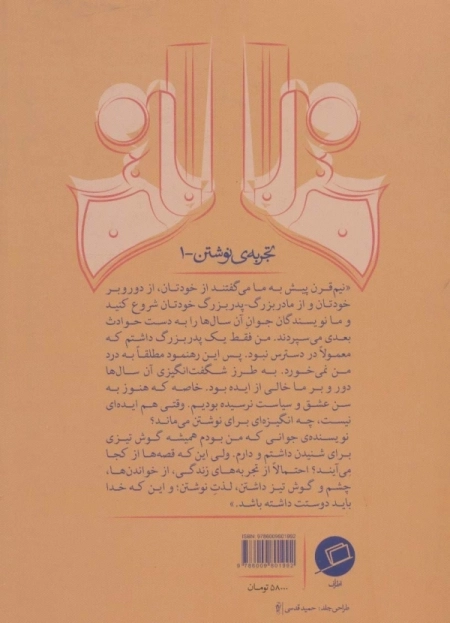 تجربه‌ی نوشتن-۱
«نیم‌قرن پیش به ما می‌گفتند از خودتان، از دوروبر
خودتان و از مادربزرگ-پدربزرگ خودتان شروع کنید
و ما نویسندگان جوانِ آن سال‌ها را به دست حوادث
بعدی می‌سپردند. من فقط یک پدربزرگ داشتم که
معمولاً در دسترس نبود. پس این رهنمود مطلقاً به درد
من نمی‌خورد. به طرز شگفت‌انگیزی آن سال‌ها
دور و بر ما خالی از ایده بود. خاصه که هنوز به
سن عشق و سیاست نرسیده بودیم. وقتی هم ایده‌ای
نیست، چه انگیزه‌ای برای نوشتن می‌ماند؟
نویسنده‌ی جوانی که من بودم همیشه گوش تیزی
برای شنیدن داشتم و دارم. ولی این‌که قصه‌ها از کجا
می‌آیند؟ احتمالاً از تجربه‌های زندگی، از خواندن‌ها،
چشم و گوش تیز داشتن، لذتِ نوشتن؛ و این که خدا
باید دوستت داشته باشد.»
۵۸۰۰۰ تومان
طراحی جلد: حمید قدسی